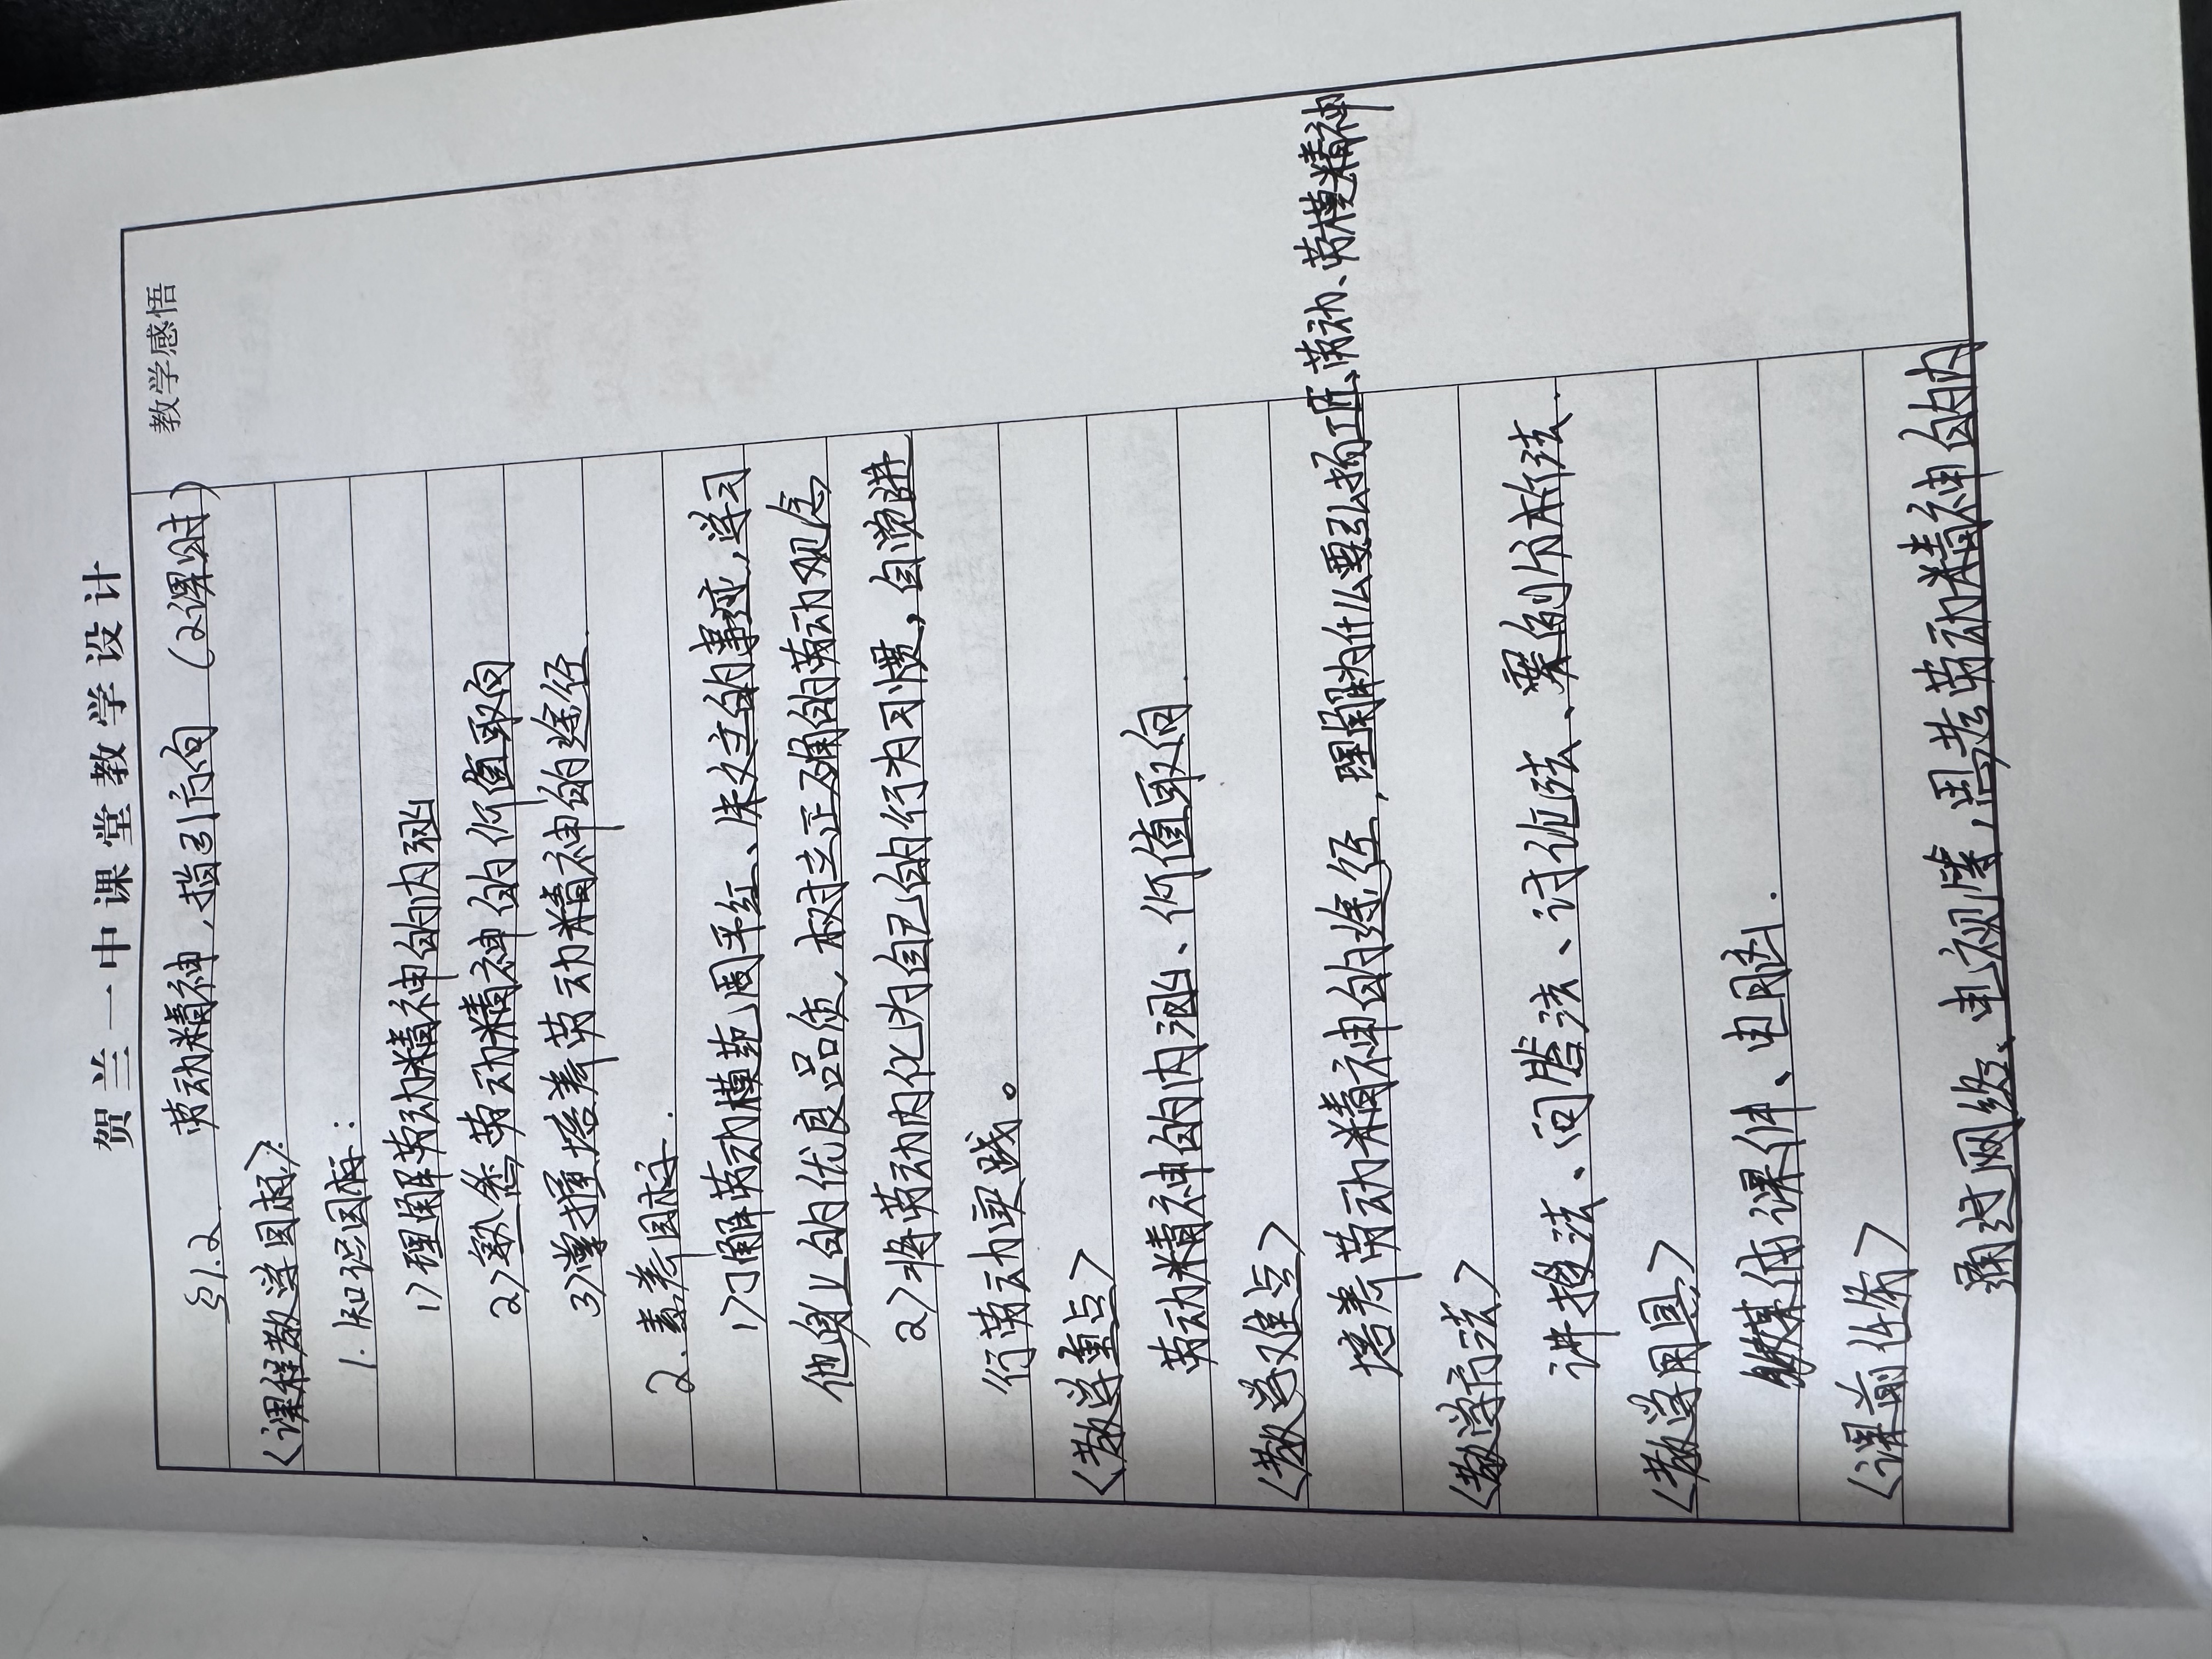 贺兰一中课堂教学设计
§1.2 劳动精神,指引方向 (2课时)
教学感悟
<课程教学目标>:
1.知识目标:
1>理解劳动精神的内涵
2>熟悉劳动精神的价值取向
3>掌握培养劳动精神的途径.
2.素养目标.
1>了解劳动模范周平红、朱文立的事迹,学习
他身上的优良品质,树立正确的劳动观念
2>将劳动内化为自己的行为习惯,自觉进
行劳动实践。
<教学重点>
劳动精神的内涵、价值取向.
<教学难点>
培养劳动精神的途径,理解为什么要弘扬工匠、劳动、劳模精神
<教学方法>
讲授法、问答法、讨论法、案例分析法.
<教学用具>
多媒体课件、电脑.
<课前任务>
通过网络、电视媒,思考劳动精神的内